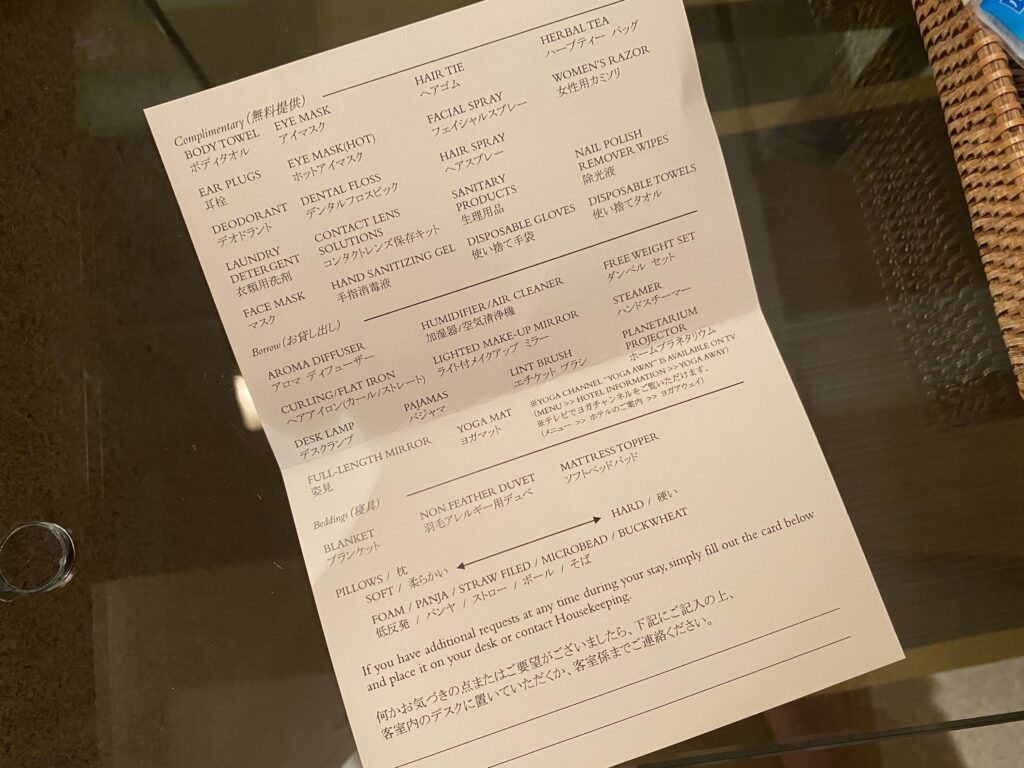 Complimentary (無料提供)
BODY TOWEL
ボディタオル
EYE MASK
アイマスク
HAIR TIE
ヘアゴム
HERBAL TEA
ハーブティー バッグ
EAR PLUGS
耳栓
EYE MASK(HOT)
ホットアイマスク
FACIAL SPRAY
フェイシャルスプレー
WOMEN'S RAZOR
女性用カミソリ
DEODORANT
デオドラント
DENTAL FLOSS
デンタルフロスピック
HAIR SPRAY
ヘアスプレー
NAIL POLISH
REMOVER WIPES
除光液
LAUNDRY
DETERGENT
衣類用洗剤
CONTACT LENS
SOLUTIONS
コンタクトレンズ保存キット
SANITARY
PRODUCTS
生理用品
DISPOSABLE TOWELS
使い捨てタオル
FACE MASK
マスク
HAND SANITIZING GEL
手指消毒液
DISPOSABLE GLOVES
使い捨て手袋
Borrow (お貸し出し)
AROMA DIFFUSER
アロマ ディフューザー
HUMIDIFIER/AIR CLEANER
加湿器/空気清浄機
FREE WEIGHT SET
ダンベル セット
CURLING/FLAT IRON
ヘアアイロン(カール/ストレート)
LIGHTED MAKE-UP MIRROR
ライト付メイクアップ ミラー
STEAMER
ハンドスチーマー
DESK LAMP
デスクランプ
PAJAMAS
パジャマ
LINT BRUSH
エチケット ブラシ
PLANETARIUM
PROJECTOR
ホームプラネタリウム
FULL-LENGTH MIRROR
姿見
YOGA MAT
ヨガマット
※YOGA CHANNEL "YOGA AWAY" IS AVAILABLE ON TV.
(MENU >> HOTEL INFORMATION >>YOGA AWAY)
※テレビでヨガチャンネルをご覧いただけます。
(メニュー >> ホテルのご案内 >> ヨガアウェイ)
Beddings (寝具)
BLANKET
ブランケット
NON FEATHER DUVET
羽毛アレルギー用デュベ
MATTRESS TOPPER
ソフトベッドパッド
PILLOWS / 枕
SOFT / 柔らかい HARD / 硬い
FOAM / PANJA / STRAW FILED / MICROBEAD / BUCKWHEAT
低反発 / パンヤ / ストロー / ボール / そば
If you have additional requests at any time during your stay, simply fill out the card below
and place it on your desk or contact Housekeeping.
何かお気づきの点またはご要望がございましたら、下記にご記入の上、
客室内のデスクに置いていただくか、客室係までご連絡ください。